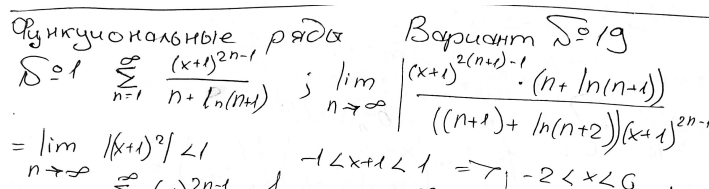 Функциональные ряды Вариант №19
№1 ∑_{n=1}^{∞} (x+1)^{2n-1} / (n + ln(n+1)) ; lim_{n→∞} | (x+1)^{2(n+1)-1} · (n + ln(n+1)) / ((n+1) + ln(n+2))(x+1)^{2n-1}
= lim_{n→∞} |(x+1)^2| < 1 -1 < x+1 < 1 => -2 < x < 0